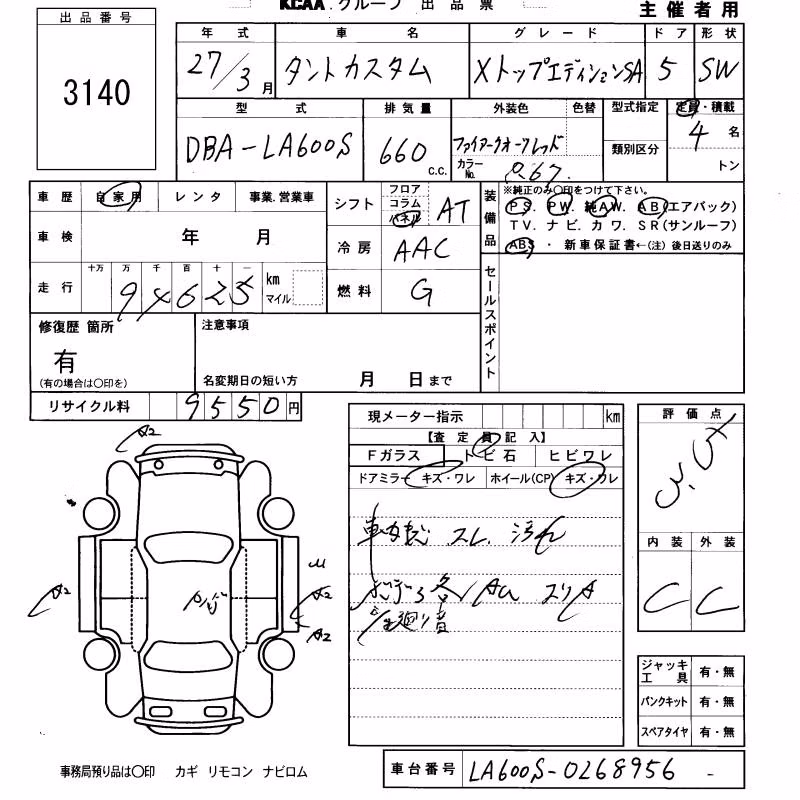 KCAA グループ 出品票
主催者用
出品番号
3140
年式 車名 グレード ドア 形状
27/3月 タントカスタム XトップエディションSA 5 SW
型式 排気量 外装色 色替 型式指定 定員・積載
DBA-LA600S 660 c.c. ファイアークオーツレッド 類別区分 4名
カラーNo.
トン
車歴 自家用 レンタ 事業.営業車
シフト フロア コラム パネル AT
装備品 ※純正のみ〇印をつけて下さい。
PS. PW. 純AW. AB(エアバック)
TV. ナビ. カワ. SR(サンルーフ)
ABS ・ 新車保証書←(注) 後日送りのみ
車検 年 月
冷房 AAC
走行 十万 万 千 百 十 一 km マイル
94625
燃料 G
セールスポイント
修復歴 箇所 注意事項
有
(有の場合は〇印を) 名変期日の短い方 月 日まで
リサイクル料 9550円
現メーター指示 km
【査定員記入】
Fガラス トビ石 ヒビワレ
ドアミラー キズ・ワレ ホイール(CP) キズ・ワレ
スレ 汚れ
各
評価点
内装 外装
C C
A2
A2
A2
A2
ジャッキ工具 有・無
パンクキット 有・無
スペアタイヤ 有・無
事務局預り品は〇印 カギ リモコン ナビロム
車台番号 LA600S-0268956 -